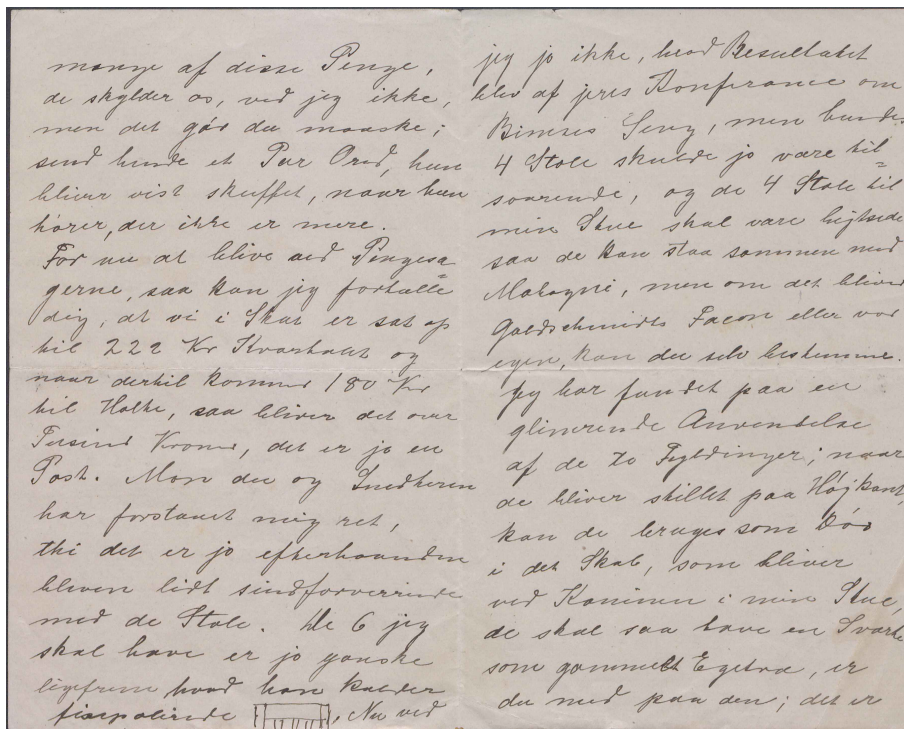 mange af disse Penge,
de skylder os, ved jeg ikke,
men det gør du maaske;
send hende et Par Ord, hun
bliver vist skuffet, naar hun
hører, der ikke er mere.
For nu at blive ved Pengesa=
gerne, saa kan jeg fortælle
dig, at vi i Skat er sat op
til 222 Kr Kvartalet og
naar dertil kommer 180 Kr
til Holte, saa bliver det over
Tusind Kroner, det er jo en
Post. Mon du og Snedkeren
har forstaaet mig ret,
thi det er jo efterhaanden
bleven lidt sindforvirrende
med de Stole. De 6 jeg
skal have er jo ganske
ligefrem hvad han kalder
finpolerede Nu ved
jeg jo ikke, hvad Resultatet
blev af jeres Konferance om
Bimses Seng, men hendes
4 Stole skulde jo være til=
svarende, og de 4 Stole til
min Stue skal være
saa de kan staa sammen med
Mahogni, men om det bliver
Goldschmidts Facon eller vor
egen, kan du selv bestemme.
Jeg har fundet paa en
glimrende Anvendelse
af de to Fyldinger; naar
de bliver skillet paa Højkant,
kan de bruges som Dør
i det Skab, som bliver
ved Kaminen i min Stue,
de skal saa have en Sværte
som gammelt Egetræ, er
du med paa den; det er